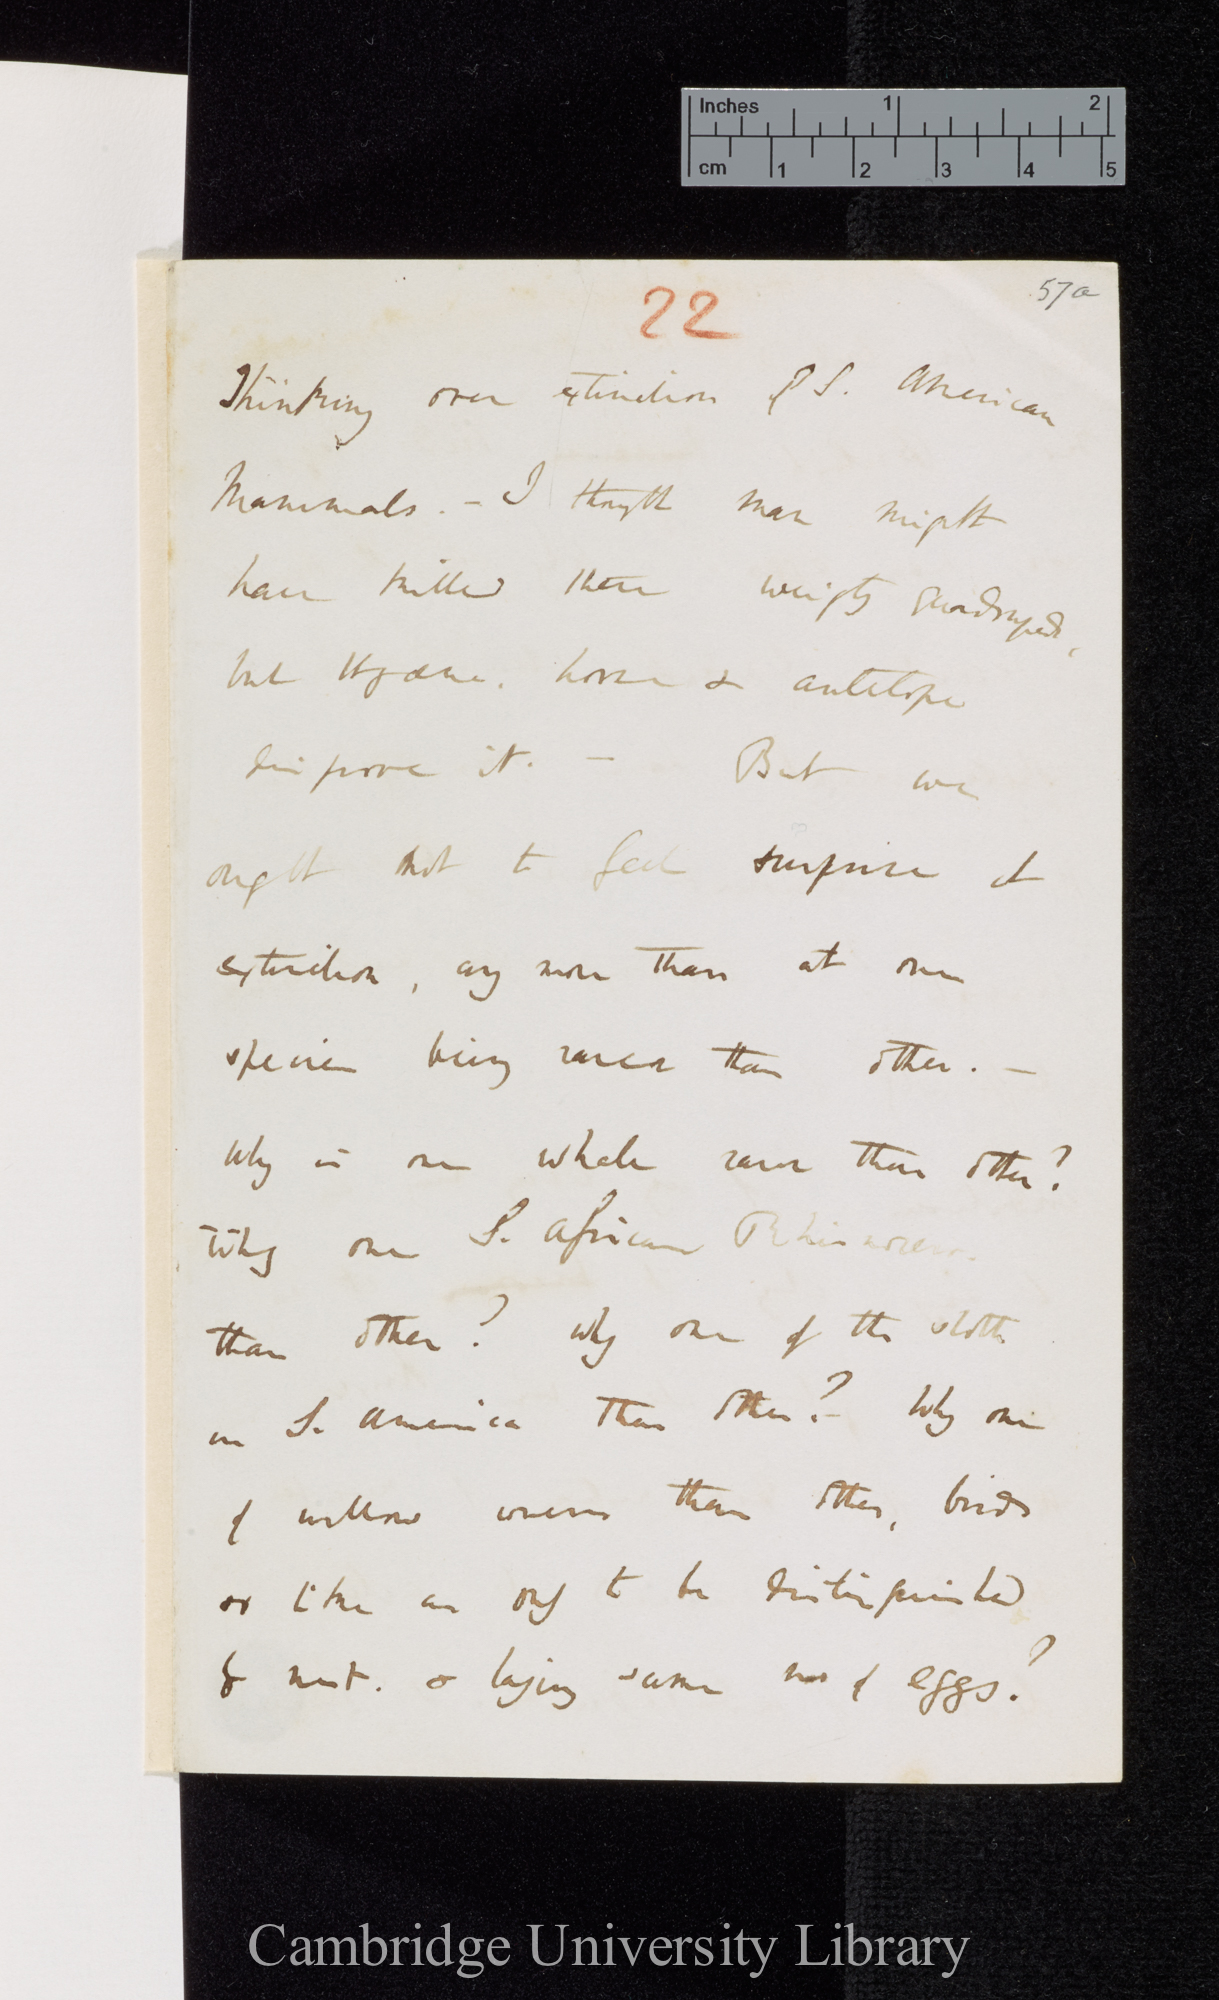 Inches 1 2
cm 1 2 3 4 5
57a
22
Thinking over extinction of S. American
Mammals. – I thought man might
have killed these weighty quadrupeds,
but Hyaena. horse & antelope
disprove it. – But we
ought not to feel surprise at
extinction, any more than at one
species being rarer than other. –
Why is one whale rarer than other?
Why one S. African Rhinoceros.
than other? Why one of the sloths
in S. America than other? – Why one
of willow wrens than other, birds
so like as only to be distinguished
by nest. & laying same no of eggs?
Cambridge University Library